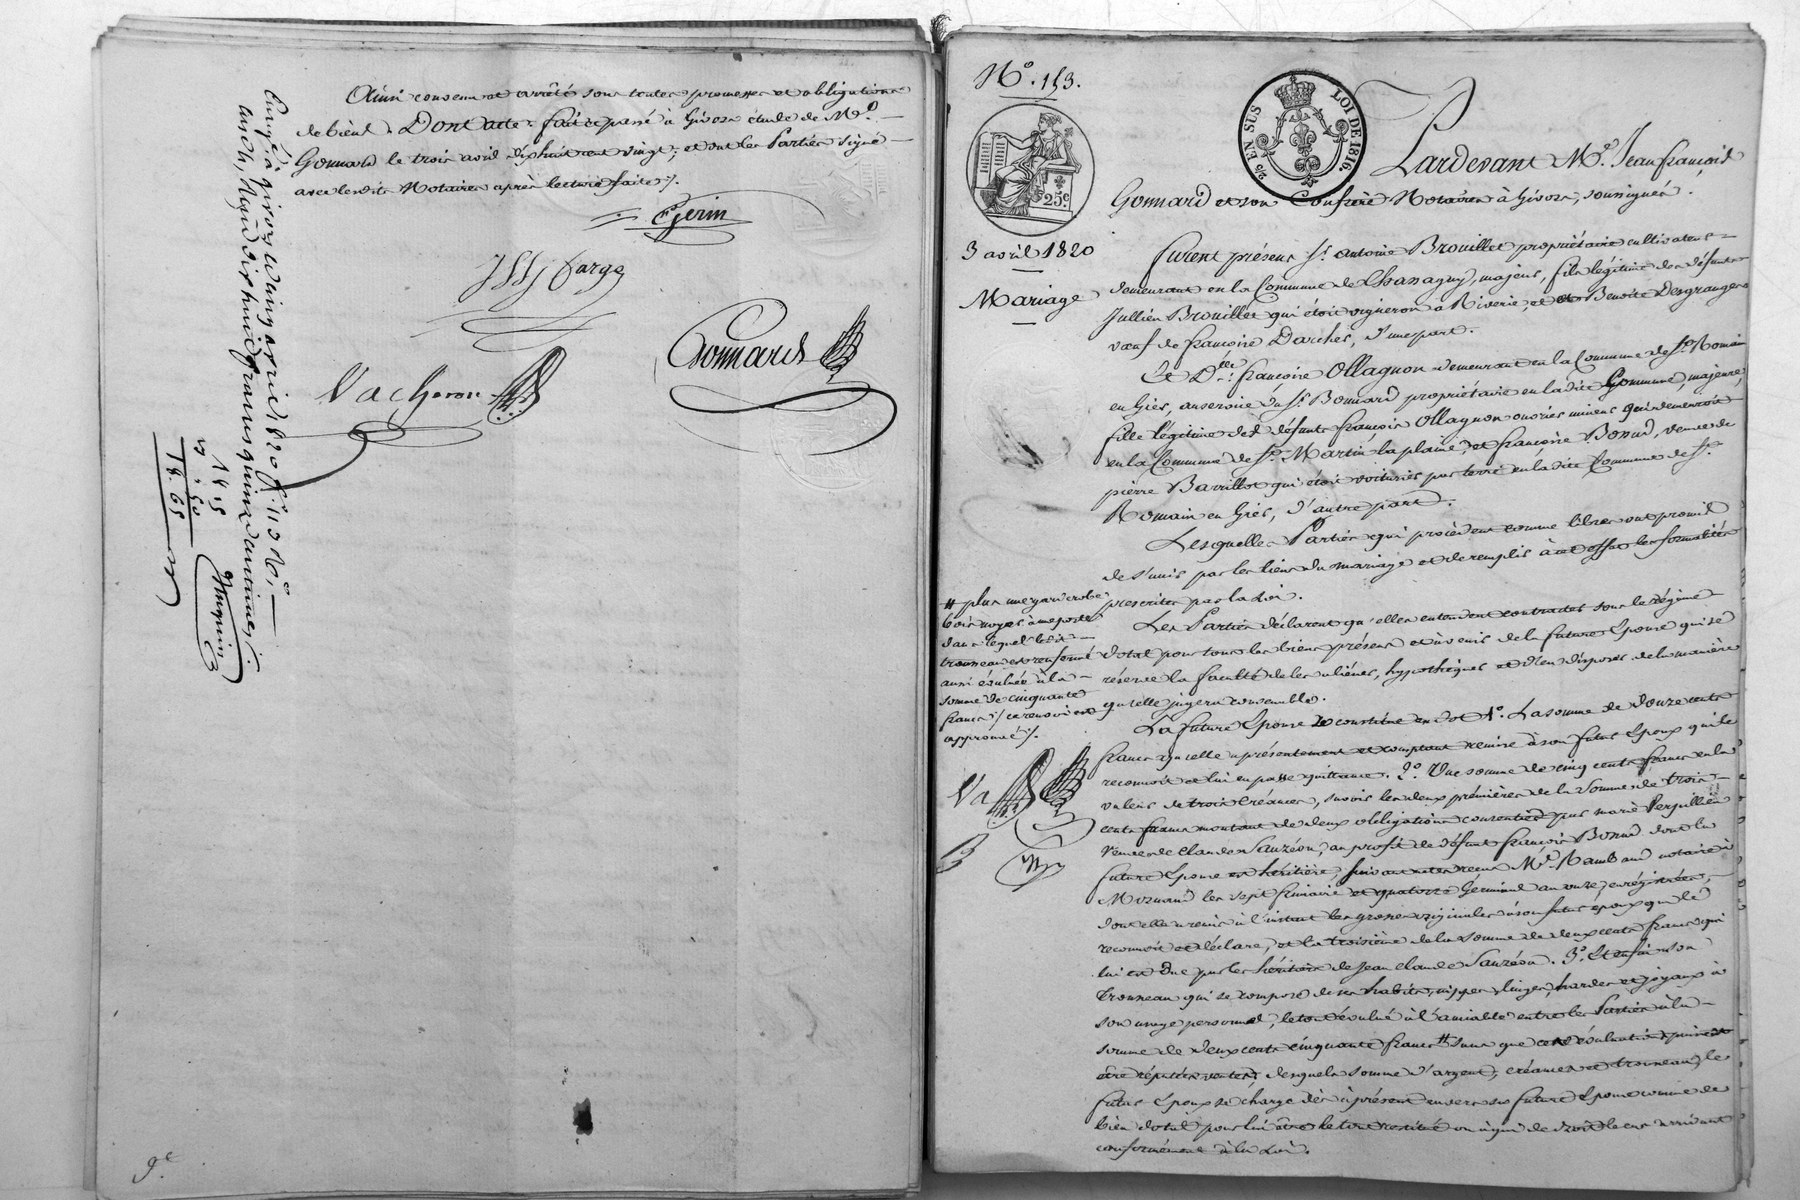 Ainsi convenu et arrêté sous toutes promesses et obligations
de biens. Dont acte fait et passé à Givors étude de Me.
Gonnard le trois avril dix huit cent vingt; et ont les Parties signé
avec lesdits Notaires après lecture faite ./.
Gerin
Farge
Gonnard
Vacheron
Enregé à Givors le vingt avril 1820 fo. 113 Ro.
quinze centimes ./.
14. 15
. 50
18. 65
9e
No. 153.
25c.
25 c EN SUS LOI DE 1816.
3 avril 1820
Mariage
Pardevant Me. Jean françois
Gonnard et son Confrère Notaires à Givors, soussignés.
furent présens Sr. antoine Brouillet propriétaire cultivateur
demeurant en la Commune de Chassagny, majeur, fils légitime des défunts
Jullien Brouillet qui étoit vigneron à Riverie, et Benoite Desgranges
vœuf de françoise Darches, d'une part.
Et Dlle. françoise Ollagnon demeurant en la Commune de St. Romain
en Gier, au service du Sr. Bonnard propriétaire en ladite Commune, majeure,
fille légitime des défunts françois Ollagnon ouvrier mineur qui demeuroit
en la Commune de St. Martin la plaine, et françoise Bonnd, veuve de
pierre Barrillot qui étoit voiturier par terre en ladite Commune de St.
Romain en Gier, d'autre part.
Lesquelles Parties qui procèdent comme libres ont promis
de s'unir par les liens du mariage et de remplir à cet effet les formalités
prescrites par la Loi.
Les Parties déclarent qu'elles entendent contracter sous le régime
dotal pour tous les biens présens et à venir de la future Epouse qui se
réserve la faculté de les aliéner, hypothéquer et d'en disposer de la manière
qu'elle jugera convenable.
# plus une garderobe
bois noyer à une porte
dans lequel ledit
trousseau est renfermé
aussi évaluée à la
somme de cinquante
francs ./. ce renvoi est
approuvé ./.
Va
La future Epouse se constitue en dot 1o. La somme de douze cents
francs qu'elle a présentement et comptant remise à son futur Epoux qui le
reconnoit et lui en passe quittance. 2o. Une somme de cinq cents francs en la
valeur de trois Créances, savoir les deux premières de la somme de trois
cents francs montant de deux obligations consenties par marie Perjullien
veuve de Claude Sauzéon, au profit de défunt françois Bonnd dont la
future Epouse est héritière, suivant actes reçus Me. Rambaud notaire à
Mornand les sept frimaire et quatorze Germinal an onze, enregistrées,
dont elle a remis à l'instant les grosses originales à son futur époux qui le
reconnoit et déclare, et la troisième de la somme de deux cents francs qui
lui est due par les héritiers de Jean Claude Sauzéon. 3o. Et enfin son
trousseau qui se compose de ses habits, nippes, linges, hardes et joyaux à
son usage personnel, le tout évalué à l'amiable entre les Parties à la
somme de deux cents cinquante francs # sans que cette évaluation puisse
être réputée vente; desquels somme d'argent, créances et trousseau, le
futur Epoux se charge dès à présent envers sa future Epouse comme de
bien dotal pour lui être le tout restitué où à qui de droit le cas arrivant
conformément à la Loi.